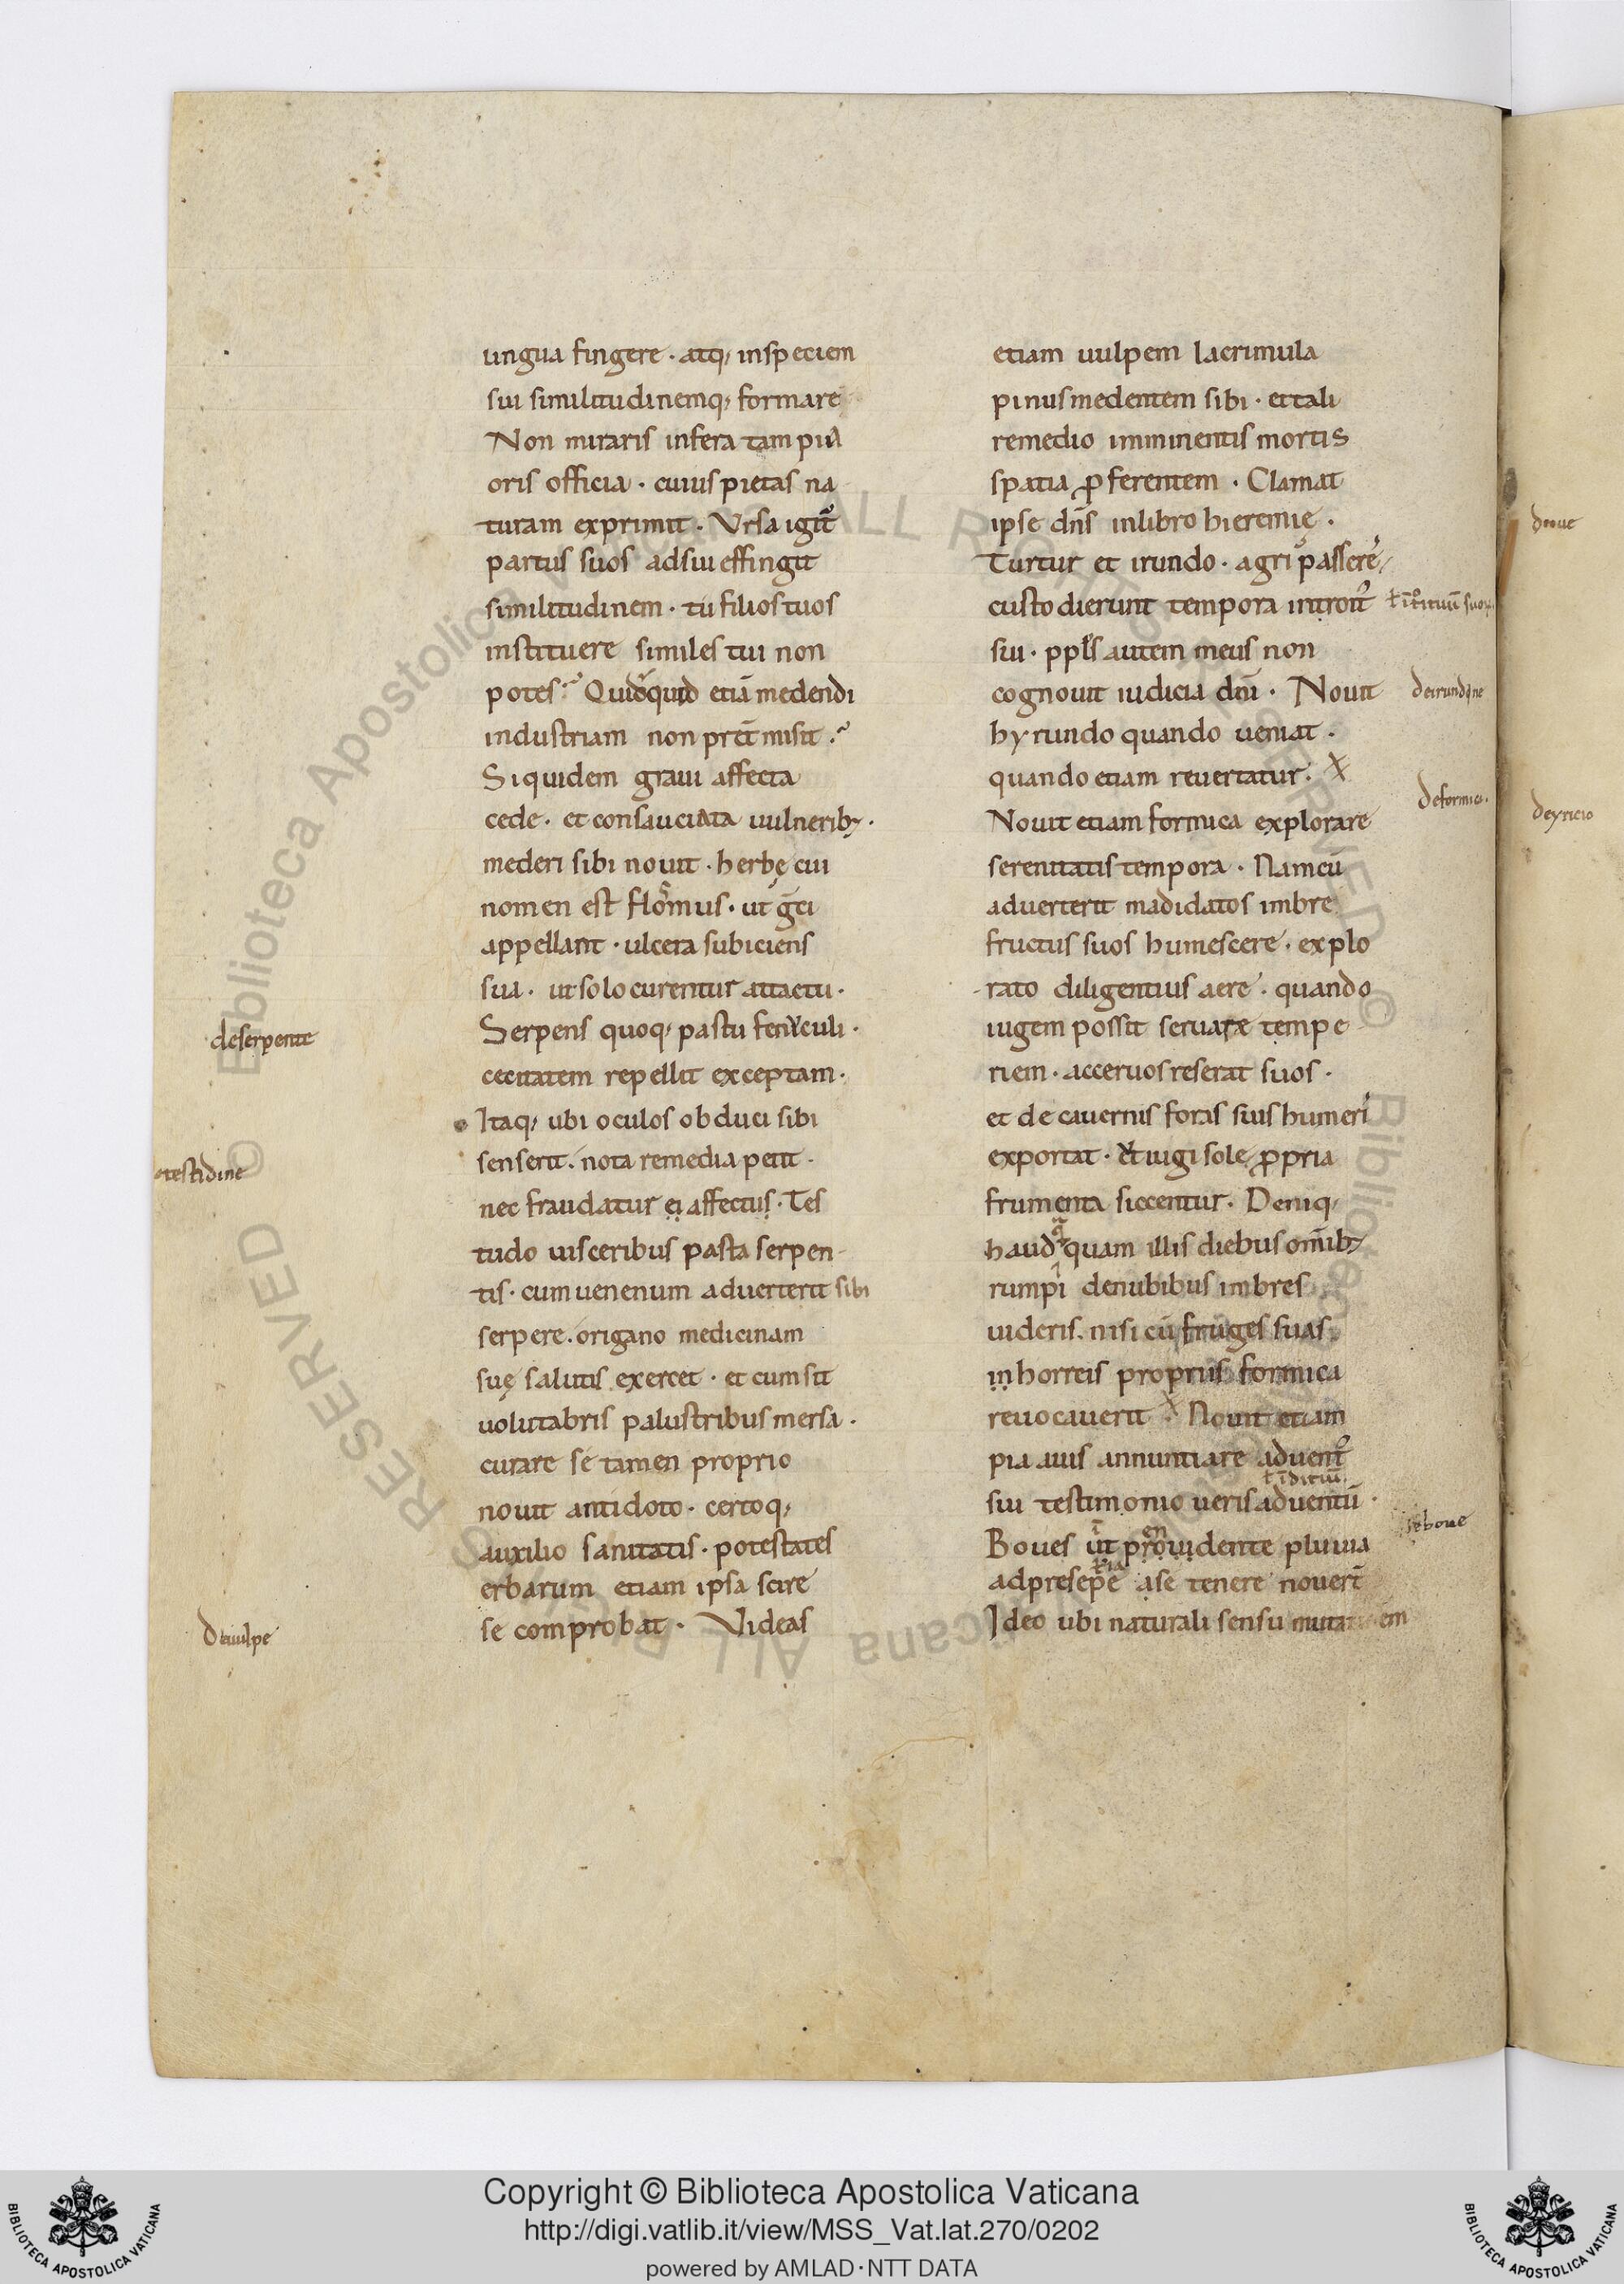 ungua fingere · atq; inspeciem
sui similitudinemq; formare
Non miraris infera tam pia
oris officia · cuius pietas na
turam exprimit · Vrsa igit᷒
partus suos adsui effingit
similitudinem · tu filios tuos
instituere similes tui non
potes · Quid quid etiā medendi
industriam non pretmisit ·
Siquidem graui affecta
cede · et consauciata uulnerib; ·
mederi sibi nouit · herbę cui
nomen est flomus · ut gci
appellant · ulcera subiciens
sua · ut solo curentur attactu ·
Serpens quoq; pastu feniculi ·
cecitatem repellit exceptam ·
Itaq; ubi oculos obduci sibi
senserit · nota remedia petit ·
nec fraudatur ei affectus · Tes
tudo uisceribus pasta serpen
tis · cum uenenum aduerterit sibi
serpere · origano medicinam
suę salutis exercet · et cum sit
uolutabris palustribus mersa ·
curare se tamen proprio
nouit antidoto · certoq;
auxilio sanitatis · potestates
erbarum etiam ipsa scire
se comprobat · Videas
deserpente
testidine
deuulpe
etiam uulpem lacrimula
pinus medentem sibi · et tali
remedio imminentis mortis
spatia ꝓferentem · Clamat
ipse dn̄s inlibro hieremię ·
Turtur et irundo · agri passere
custodierunt tempora introit᷒
sui · ppl̄s autem meus non
cognouit iudicia dn̄i · Nouit
hyrundo quando ueniat ·
quando etiam reuertatur · X
Nouit etiam formica explorare
serenitatis tempora · Nam cū
aduerterit madidatos imbre
fructus suos humescere · explo
rato diligentius aere · quando
iugem possit seruare tempe
riem · aceruos reserat suos ·
et de cauernis foras suis humeri
exportat · ut iugi sole ꝓpria
frumenta siccentur · Deniq;
haud quam illis diebus om̄ib;
rumpi denubibus imbres
uideris · nisi cū fruges suas
inhorreis propriis formica
reuocauerit · X Nouit etiam
pia auis annuntiare aduent᷒
sui testimonio ueris aduentū ·
Boues ut prouidente pluuia
adpresepe ase tenere nouert̄
Ideo ubi naturali sensu
deirundine
deformica ·
deboue
deyricio
Copyright © Biblioteca Apostolica Vaticana
http://digi.vatlib.it/view/MSS_Vat.lat.270/0202
powered by AMLAD·NTT DATA
BIBLIOTECA APOSTOLICA VATICANA
BIBLIOTECA APOSTOLICA VATICANA